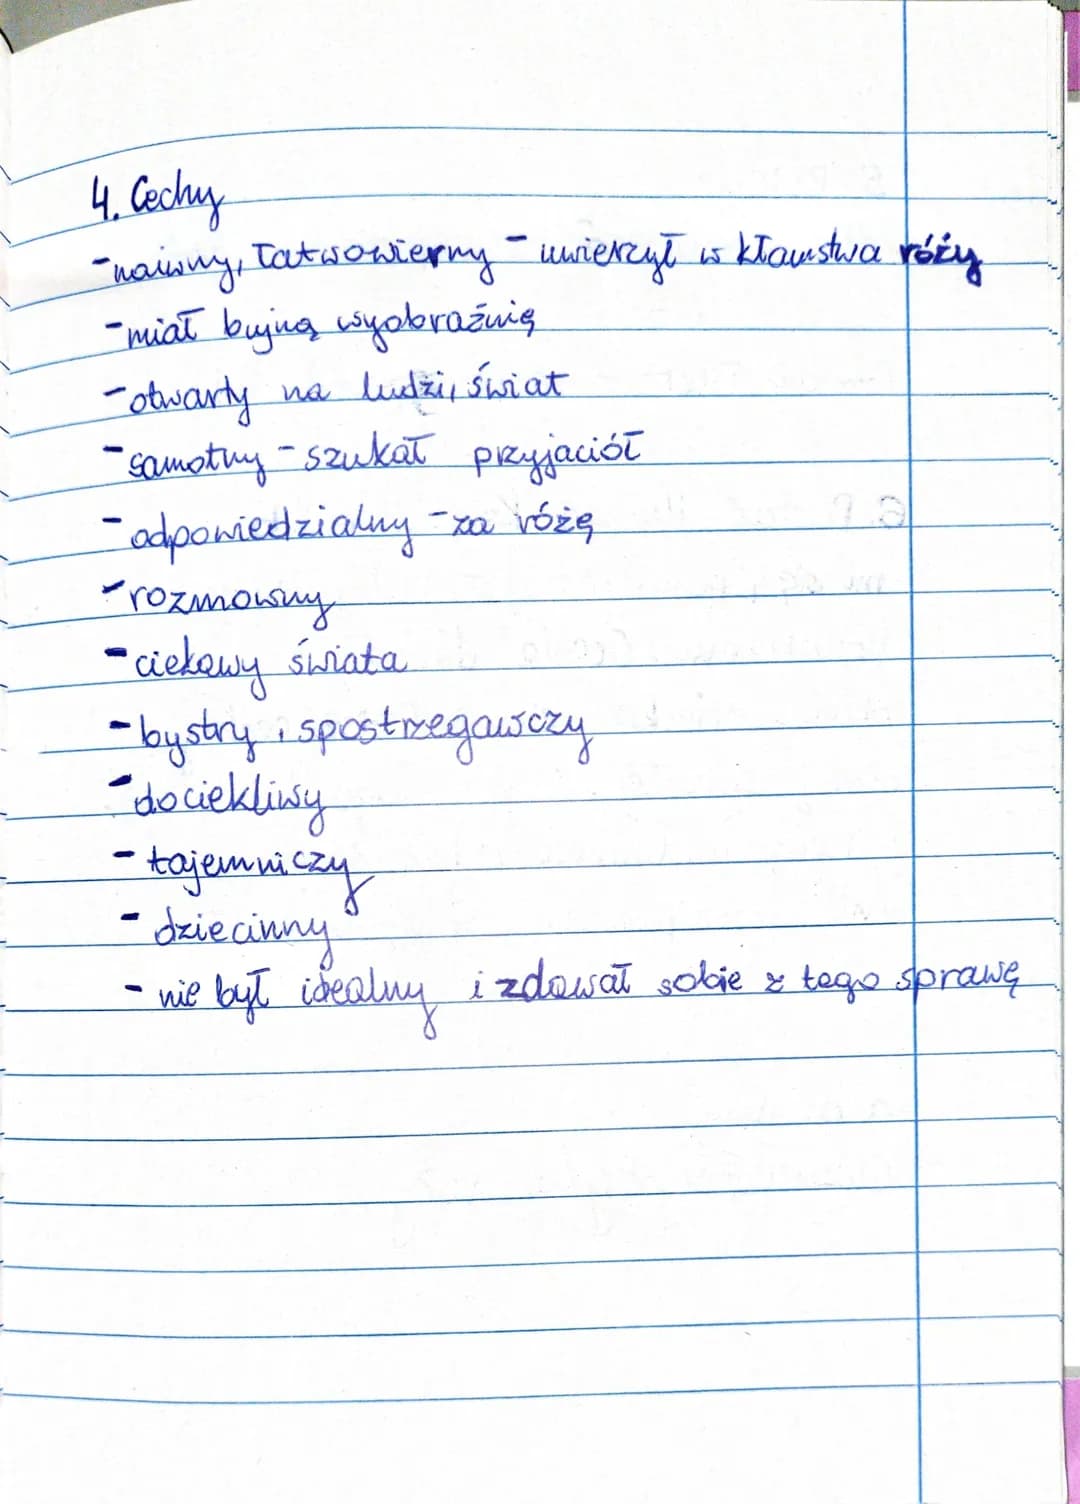 4. Cechy
- naiwny, łatwowierny - uwierzył w kłamstwa róży
- miał bujną wyobraźnię
- otwarty na ludzi, świat
- samotny - szukał przyjaciół
- odpowiedzialny - za różę
- rozmowny
- ciekawy świata
- bystry, spostrzegawczy
- dociekliwy
- tajemniczy
- dziecinny
- nie był idealny i zdawał sobie z tego sprawę